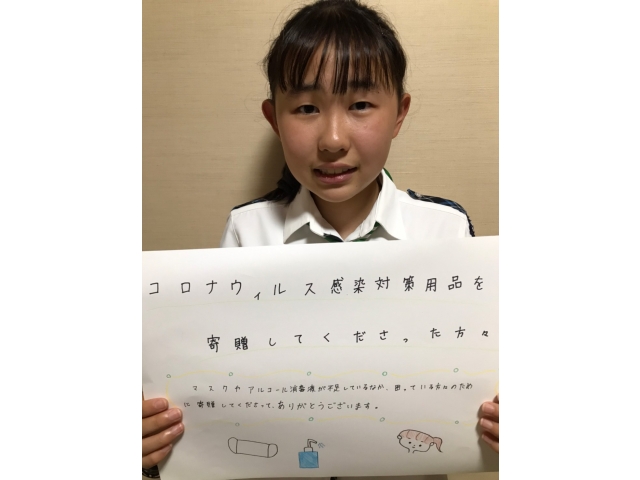 コロナウィルス感染対策用品を
寄贈してくださった方々
マスクやアルコール消毒液が不足しているなか、困っている方々のため
に寄贈してくださって、ありがとうございます。